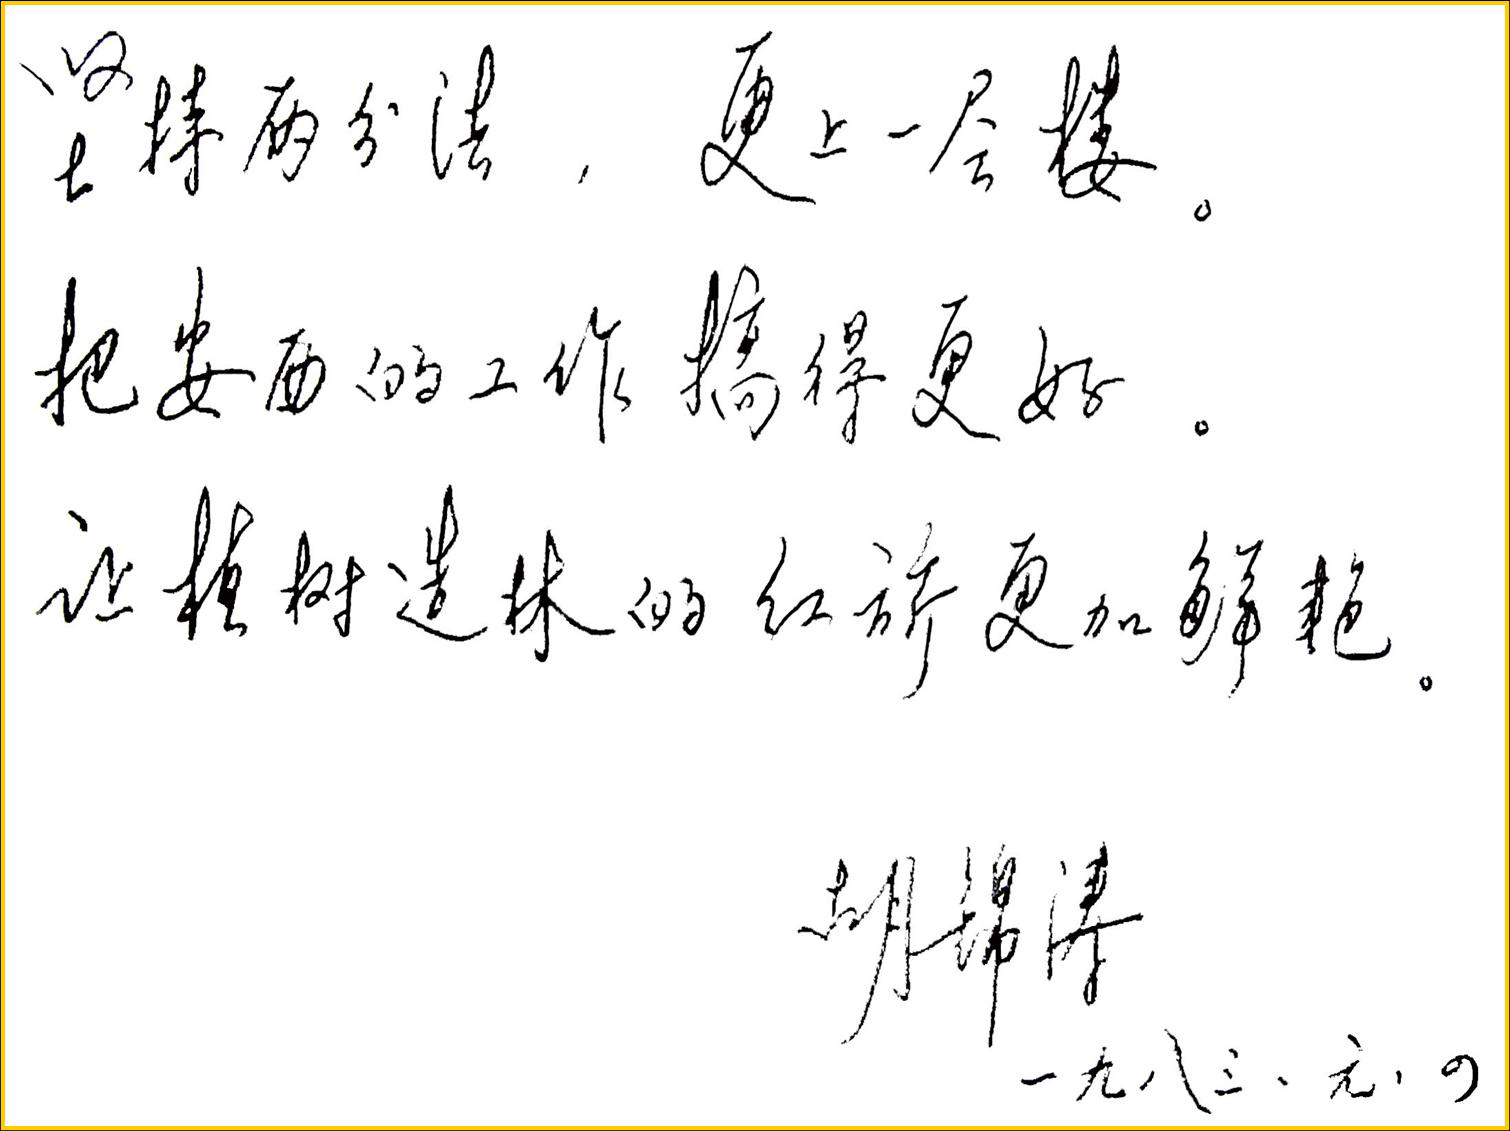 坚持两分法，更上一层楼。
把安西的工作搞得更好。
让植树造林的红旗更加鲜艳。
胡锦涛
一九八三、元、四